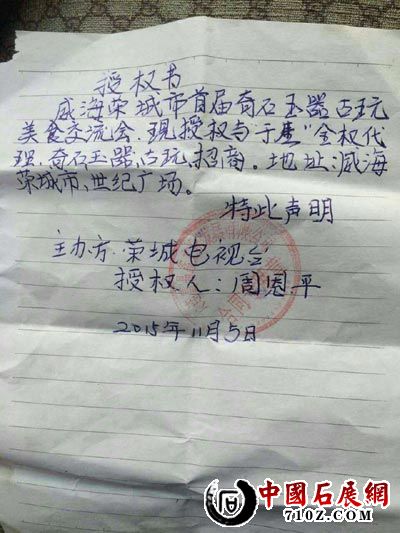 授权书
威海荣城市首届奇石玉器占玩
美食交流会、现授权与于 "全权代
理、奇石玉器、占玩、招商。地址:威海
荣城市、世纪广场。
特此声明
主办方:荣城电视台
授权人:周恩平
2015年11月5日
中國石展網
710Z.COM